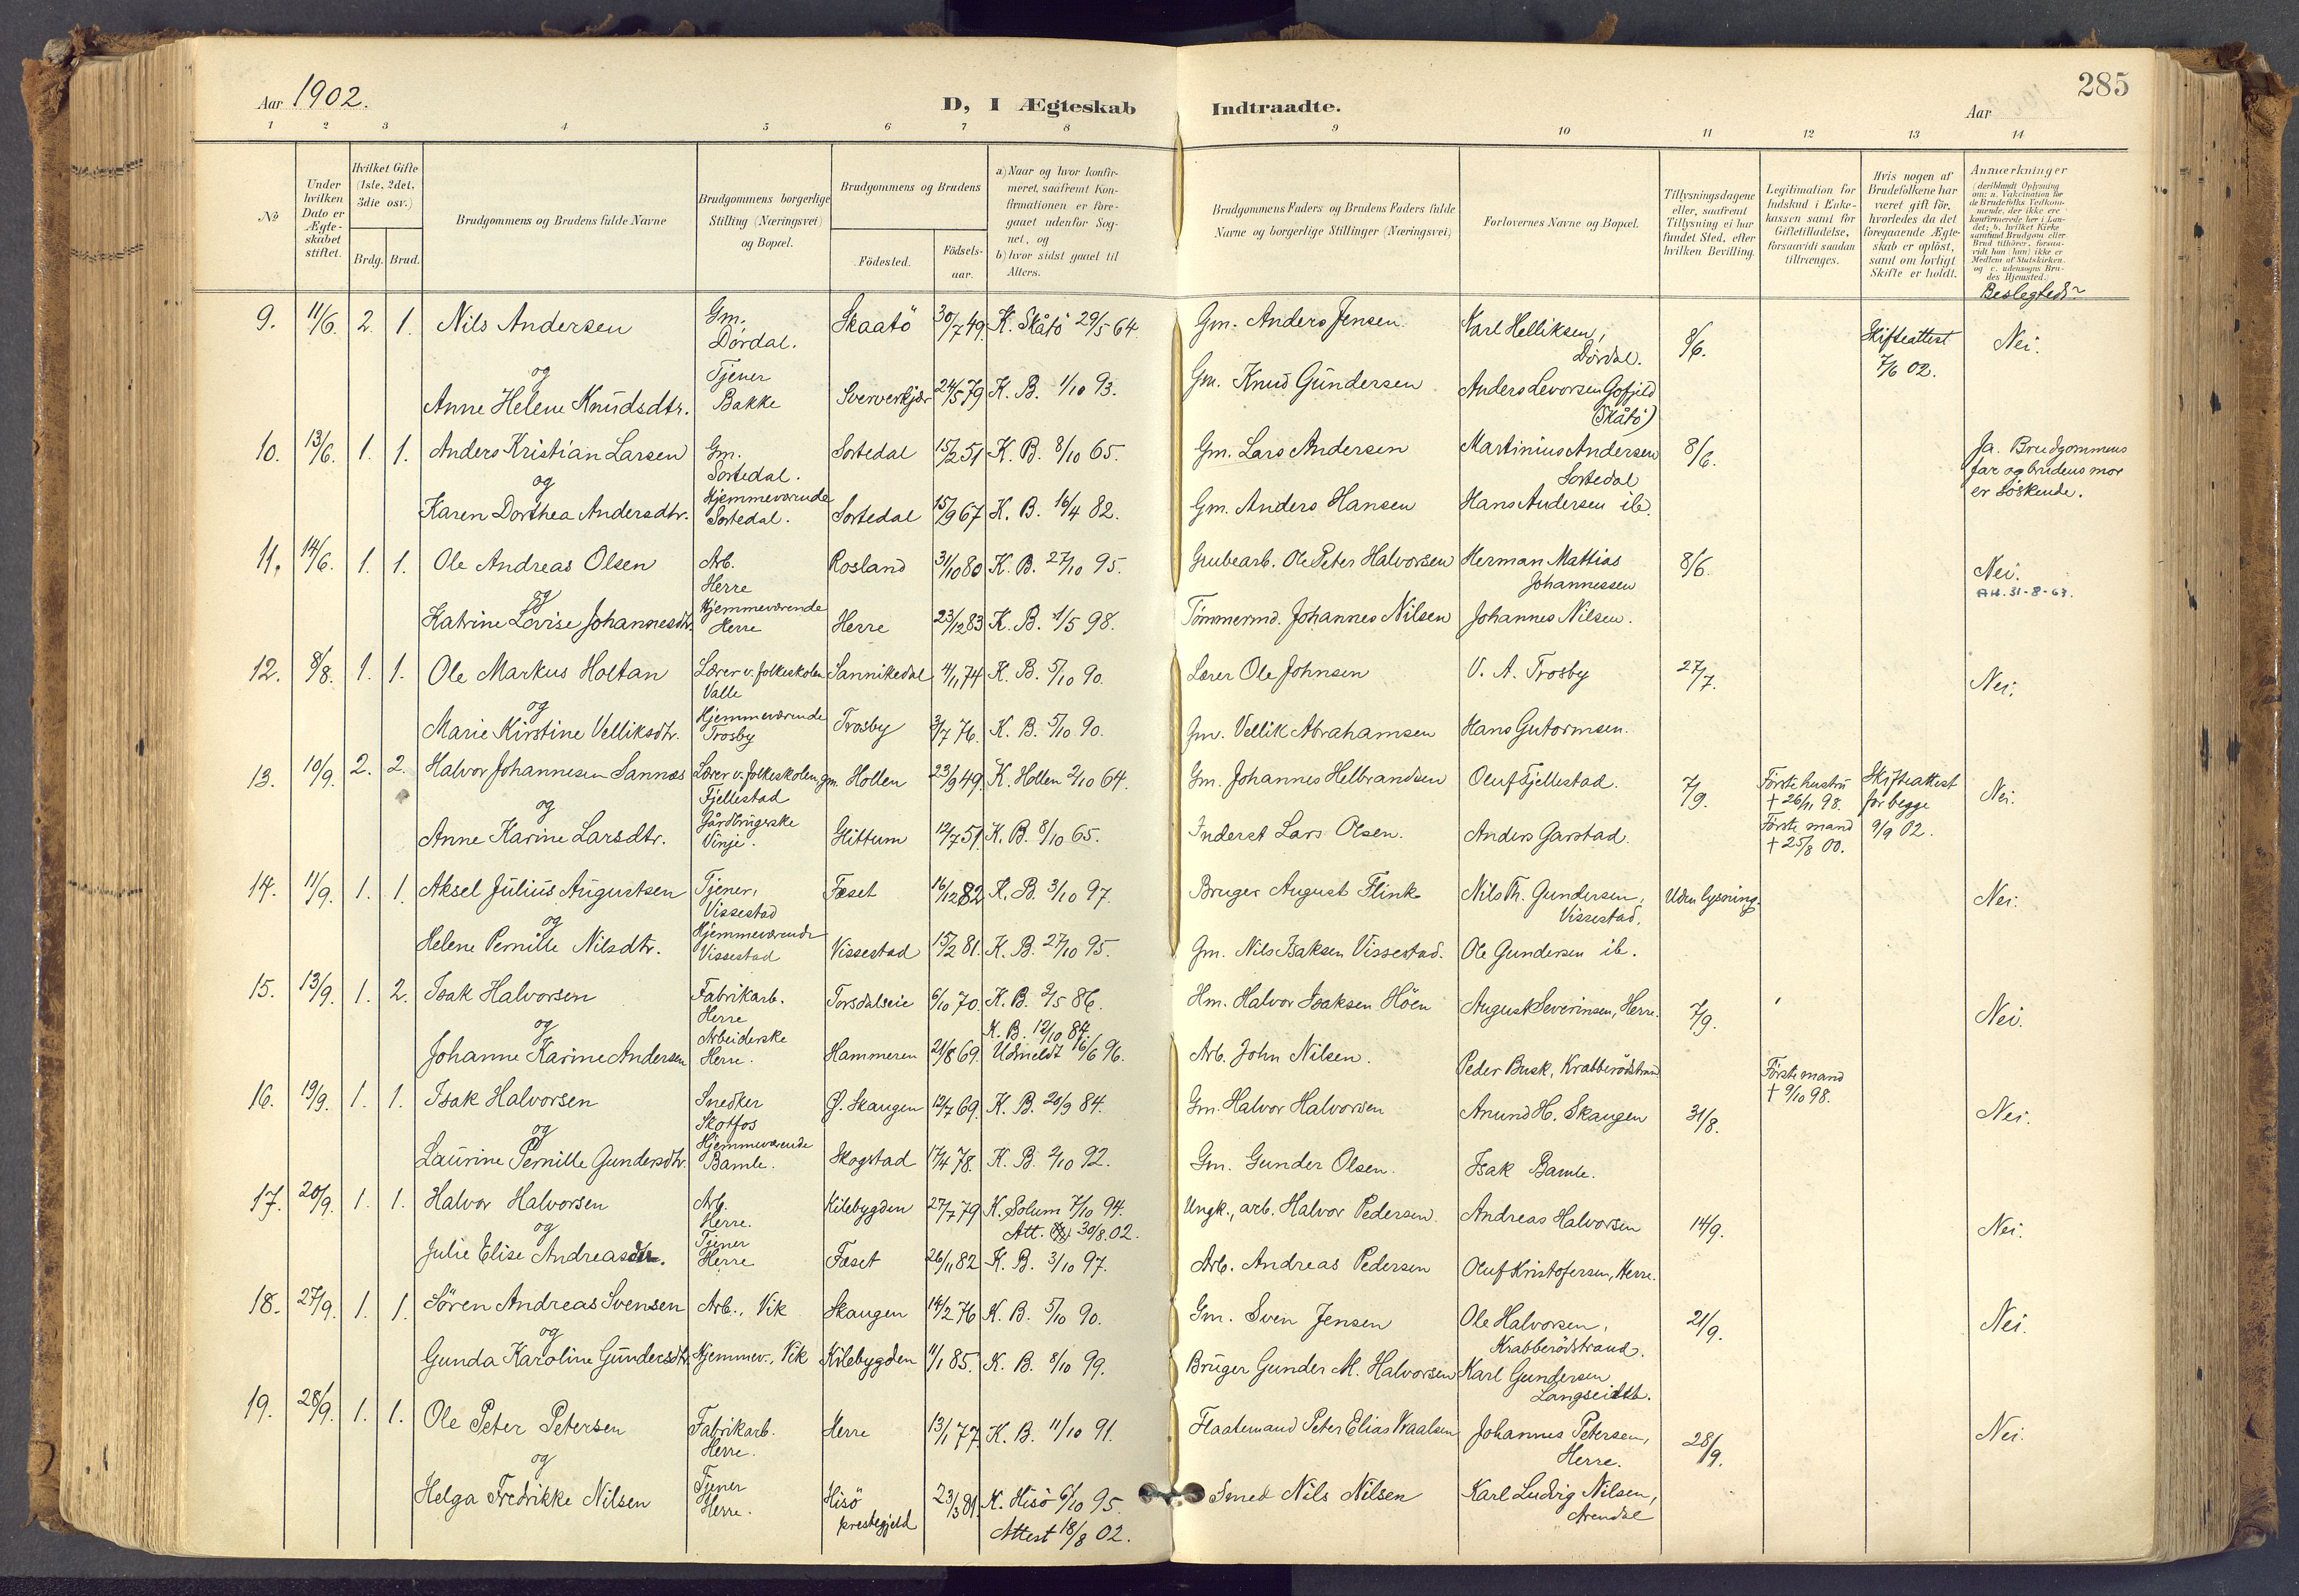 Aar 1902.
D, I Ægteskab Indtraadte.
Aar
285
1 2 3 4 5 6 7 8 9 10 11 12 13 14
№
Under hvilken Dato er Ægteskabet stiftet.
Hvilket Gifte (1ste, 2det, 3die osv.)
Brdg. Brud.
Brudgommens og Brudens fulde Navne
Brudgommens borgerlige Stilling (Næringsvei) og Bopæl.
Brudgommens og Brudens
Födested.
Födselsaar.
a) Naar og hvor konfirmeret, saafremt Konfirmationen er foregaaet udenfor Sognet, og
b) hvor sidst gaaet til Alters.
Brudgommens Faders og Brudens Faders fulde Navne og borgerlige Stillinger (Næringsvei)
Forlovernes Navne og Bopæl.
Tillysningsdagene eller, saafremt Tillysning ei har fundet Sted, efter hvilken Bevilling.
Legitimation for Indskud i Enkekassen samt for Giftetilladelse, forsaavidt saadan tiltrænges.
Hvis nogen af Brudefolkene har været gift för, hvorledes da det foregaaende Ægteskab er oplöst, samt om lovligt Skifte er holdt.
Anmærkninger
Beslegtede?
9. 11/6. 2. 1. Nils Andersen Gm. Dørdal. Skaatö 30/7 49. K. Skåtö 29/5 64. Gm. Anders Jensen. Karl Helliksen, Dørdal. 8/6. Skifteattest 7/6 02. Nei.
og
Anne Helene Knudsdtr. Tjener Bakke 24/5 79 K. B. 1/10 93. Gm. Knud Gundersen Anders Levorsen Gofjeld (Skåtö)
10. 13/6. 1. 1. Anders Kristian Larsen Gm. Sortedal. Sortedal 15/2 51 K. B. 8/10 65. Gm. Lars Andersen Martinius Andersen Sortedal 8/6. Ja. Brudgommens far og brudens mor er söskende.
og
Karen Dorthea Andersdtr. Hjemmeværende Sortedal. Sortedal 15/9 67 K. B. 16/4 82. Gm. Anders Hansen Hans Andersen ib.
11. 14/6. 1. 1. Ole Andreas Olsen Arb. Herre Rosland 31/10 80 K. B. 27/10 95. Grubearb. Ole Peter Halvorsen Herman Mattias Johannessen 8/6. Nei.
AH. 31-8-63.
og
Katrine Lovise Johannesdtr. Hjemmeværende Herre Herre 23/12 83 K. B. 1/5 98. Tömmermd. Johannes Nilsen Johannes Nilsen.
12. 8/8. 1. 1. Ole Markus Holtan Lærer v. folkeskolen Valle Sannikedal 4/11 74 K. B. 5/10 90. Lærer Ole Johnsen V. A. Trosby 27/7. Nei.
og
Marie Kirstine Velliksdtr. Hjemmeværende Trosby Trosby 3/7 76. K. B. 5/10 90. Gm. Vellik Abrahamsen Hans Gutormsen.
13. 10/9. 2. 2. Halvor Johannesen Sannæs Lærer v. folkeskolen, gm. Fjellestad Hollen 23/9 49. K. Hollen 2/10 64. Gm. Johannes Helbrandsen Oluf Fjellestad. 7/9. Förste hustru † 26/11 98. Skifteattest for begge 9/9 02. Nei.
og
Anne Karine Larsdtr. Gårdbrugerske Vinje. Glittum 12/7 51. K. B. 8/10 65. Inderst Lars Olsen. Anders Garstad. Förste mand † 25/8 00.
14. 11/9. 1. 1. Aksel Julius Augustsen Tjener, Vissestad Fæset 16/12 82 K. B. 3/10 97. Bruger August Flink Nils Th. Gundersen, Vissestad. Uden lysning. Nei.
og
Helene Pernille Nilsdtr. Hjemmeværende Vissestad Vissestad 15/2 81. K. B. 27/10 95. Gm. Nils Isaksen Vissestad. Ole Gundersen ib.
15. 13/9. 1. 2. Isak Halvorsen Fabrikarb. Herre Torsdalseie 6/10 70. K. B. 2/5 86. Hm. Halvor Isaksen Höen August Severinsen, Herre. 7/9. Nei.
og
Johanne Karine Andersen Arbeiderske Herre. Hammeren 21/8 69. K. B. 12/10 84. Udmeldt 16/6 96. Arb. John Nilsen. Peder Busk, Krabberödstrand Förste mand † 9/10 98.
16. 19/9. 1. 1. Isak Halvorsen Snedker Skotfos Ø. Skaugen 12/7 69. K. B. 28/9 84. Gm. Halvor Halvorsen Anund H. Skaugen 31/8. Nei.
og
Laurine Pernille Gundersdtr. Hjemmeværende Bamle. Skogstad 17/4 78. K. B. 2/10 92. Gm. Gunder Olsen. Isak Bamle.
17. 20/9. 1. 1. Halvor Halvorsen Arb. Herre. Kilebygden 27/7 79 K. Solum 7/10 94. Att. 30/8. 02. Ungk., arb. Halvor Pedersen. Andreas Halvorsen 14/9. Nei.
og
Julie Elise Andreasdtr. Tjener Herre Fæset 26/11 82 K. B. 3/10 97. Arb. Andreas Pedersen Oluf Kristofersen, Herre.
18. 27/9. 1. 1. Sören Andreas Svensen Arb., Vik Skaugen 14/2 76 K. B. 5/10 90. Gm. Sven Jensen Ole Halvorsen, Krabberödstrand. 21/9. Nei.
og
Gunda Karoline Gundersdtr. Hjemmev., Vik Kilebygden 11/1 85. K. B. 8/10 99. Bruger Gunder M. Halvorsen Karl Gundersen
19. 28/9. 1. 1. Ole Peter Petersen Fabrikarb. Herre. Herre 13/1 77. K. B. 11/10 91. Flaatemand Peter Elias Kraalsen Johannes Petersen, Herre. 28/9. Nei.
og
Helga Fredrikke Nilsen Tjener Herre. Hisö prestegjeld 23/3 81. K. Hisö 6/10 95. Attest 18/8 02. Smed Nils Nilsen Karl Ludvig Nilsen, Arendal